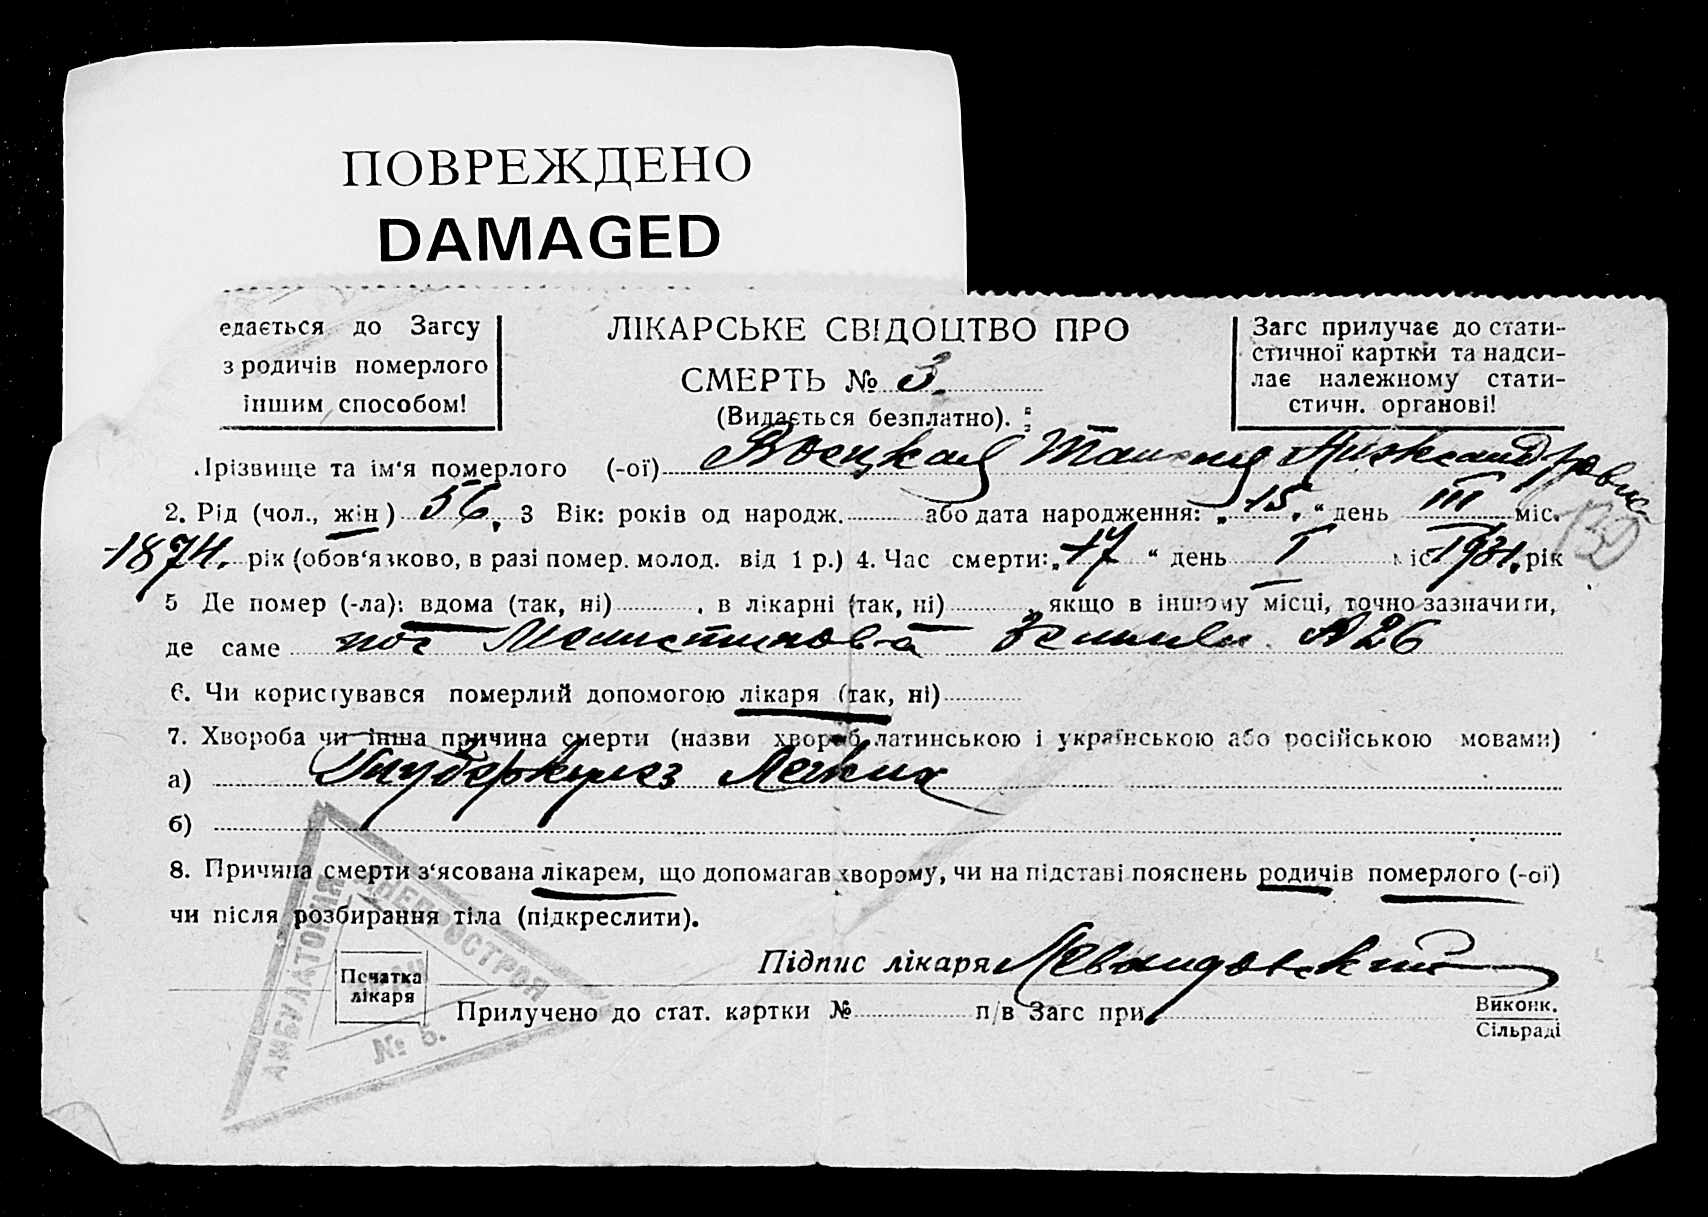 ПОВРЕЖДЕНО
DAMAGED
едається до Загсу
з родичів померлого
іншим способом!
ЛІКАРСЬКЕ СВІДОЦТВО ПРО
СМЕРТЬ № 3.
(Видається безплатно).
Загс прилучає до стати-
стичної картки та надси-
лає належному стати-
стичн. органові!
різвище та ім'я померлого (-ої)
2. Рід (чол., жін) 56. 3 Вік: років од народж. або дата народження: „15.“ день III міс.
1874. рік (обов'язково, в разі помер. молод. від 1 р.) 4. Час смерти: „17“ день I міс 1931. рік
5 Де помер (-ла): вдома (так, ні), в лікарні (так, ні), якщо в іншому місці, точно зазначити,
де саме пос №26
6. Чи користувався померлий допомогою лікаря (так, ні)
7. Хвороба чи інша причина смерти (назви хвороб латинською і українською або російською мовами)
а) Туберкулез Легких
б)
8. Причина смерти з'ясована лікарем, що допомагав хворому, чи на підставі пояснень родичів померлого (-ої)
чи після розбирання тіла (підкреслити).
АМБУЛАТОРИЯ ДНЕПРОСТРОЯ
№ 5.
Печатка
лікаря
Підпис лікаря Левандовский
Прилучено до стат. картки № п/в Загс при
Виконк.
Сільраді